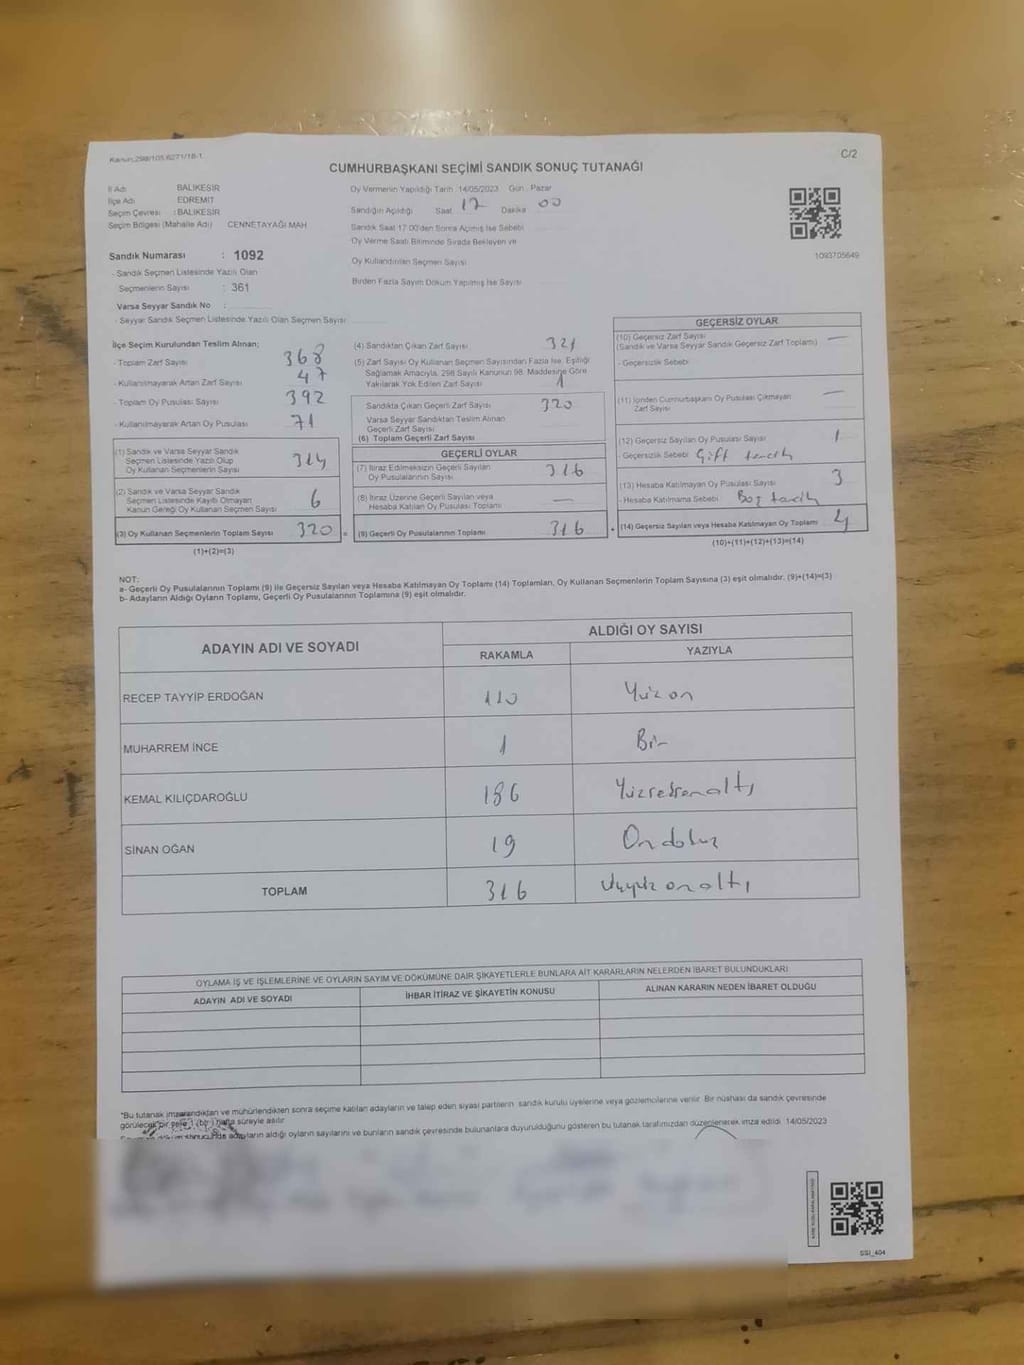 Kanun:298/105.6271/18-1
C/2
CUMHURBAŞKANI SEÇİMİ SANDIK SONUÇ TUTANAĞI
İl Adı BALIKESİR
İlçe Adı EDREMİT
Seçim Çevresi : BALIKESİR
Seçim Bölgesi (Mahalle Adı) CENNETAYAĞI MAH
Oy Vermenin Yapıldığı Tarih 14/05/2023 Gün Pazar
Sandığın Açıldığı Saat 17 Dakika 00
Sandık Saat 17.00'den Sonra Açılmış İse Sebebi
Oy Verme Saati Bitiminde Sırada Bekleyen ve
Oy Kullandırılan Seçmen Sayısı
Birden Fazla Sayım Döküm Yapılmış İse Sayısı
1093705649
Sandık Numarası : 1092
- Sandık Seçmen Listesinde Yazılı Olan
Seçmenlerin Sayısı : 361
Varsa Seyyar Sandık No :
- Seyyar Sandık Seçmen Listesinde Yazılı Olan Seçmen Sayısı
İlçe Seçim Kurulundan Teslim Alınan;
- Toplam Zarf Sayısı 368
- Kullanılmayarak Artan Zarf Sayısı 47
- Toplam Oy Pusulası Sayısı 392
- Kullanılmayarak Artan Oy Pusulası 71
(1) Sandık ve Varsa Seyyar Sandık
Seçmen Listesinde Yazılı Olup
Oy Kullanan Seçmenlerin Sayısı 314
(2) Sandık ve Varsa Seyyar Sandık
Seçmen Listesinde Kayıtlı Olmayan
Kanun Gereği Oy Kullanan Seçmen Sayısı 6
(3) Oy Kullanan Seçmenlerin Toplam Sayısı 320 =
(1)+(2)=(3)
(4) Sandıktan Çıkan Zarf Sayısı 321
(5) Zarf Sayısı Oy Kullanan Seçmen Sayısından Fazla İse, Eşitliği
Sağlamak Amacıyla, 298 Sayılı Kanunun 98. Maddesine Göre
Yakılarak Yok Edilen Zarf Sayısı 1
Sandıkta Çıkan Geçerli Zarf Sayısı 320
Varsa Seyyar Sandıktan Teslim Alınan
Geçerli Zarf Sayısı
(6) Toplam Geçerli Zarf Sayısı
GEÇERLİ OYLAR
(7) İtiraz Edilmeksizin Geçerli Sayılan
Oy Pusulasının Sayısı 316
(8) İtiraz Üzerine Geçerli Sayılan veya
Hesaba Katılan Oy Pusulası Toplamı —
(9) Geçerli Oy Pusulalarının Toplamı 316 +
GEÇERSİZ OYLAR
(10) Geçersiz Zarf Sayısı
(Sandık ve Varsa Seyyar Sandık Geçersiz Zarf Toplamı) —
- Geçersizlik Sebebi
(11) İçinden Cumhurbaşkanı Oy Pusulası Çıkmayan
Zarf Sayısı —
(12) Geçersiz Sayılan Oy Pusulası Sayısı 1
- Geçersizlik Sebebi Çift tercih
(13) Hesaba Katılmayan Oy Pusulası Sayısı 3
- Hesaba Katılmama Sebebi Boş tercih
(14) Geçersiz Sayılan veya Hesaba Katılmayan Oy Toplamı 4
(10)+(11)+(12)+(13)=(14)
NOT:
a- Geçerli Oy Pusulalarının Toplamı (9) ile Geçersiz Sayılan veya Hesaba Katılmayan Oy Toplamı (14) Toplamları, Oy Kullanan Seçmenlerin Toplam Sayısına (3) eşit olmalıdır. (9)+(14)=(3)
b- Adayların Aldığı Oyların Toplamı, Geçerli Oy Pusulalarının Toplamına (9) eşit olmalıdır.
ADAYIN ADI VE SOYADI
ALDIĞI OY SAYISI
RAKAMLA YAZIYLA
RECEP TAYYİP ERDOĞAN 110 Yüzon
MUHARREM İNCE 1 Bir
KEMAL KILIÇDAROĞLU 186 Yüzseksenaltı
SİNAN OĞAN 19 Ondokuz
TOPLAM 316 Üçyüzonaltı
OYLAMA İŞ VE İŞLEMLERİNE VE OYLARIN SAYIM VE DÖKÜMÜNE DAİR ŞİKAYETLERLE BUNLARA AİT KARARLARIN NELERDEN İBARET BULUNDUKLARI
ADAYIN ADI VE SOYADI İHBAR İTİRAZ VE ŞİKAYETİN KONUSU ALINAN KARARIN NEDEN İBARET OLDUĞU
*Bu tutanak imzalandıktan ve mühürlendikten sonra seçime katılan adayların ve talep eden siyasi partilerin sandık kurulu üyelerine veya gözlemcilerine verilir. Bir nüshası da sandık çevresinde
görülecek bir yere 1 (bir) hafta süreyle asılır.
adayların aldığı oyların sayılarını ve bunların sandık çevresinde bulunanlara duyurulduğunu gösteren bu tutanak tarafımızdan düzenlenerek imza edildi. 14/05/2023
SSI_404